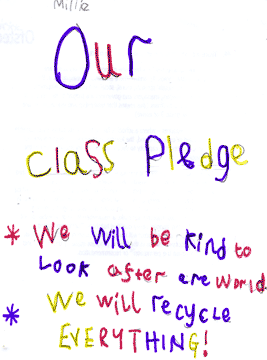 Millie
Our
class Pledge
* We will be kind to
Look after are world
* We will recycle
EVERYTHING!